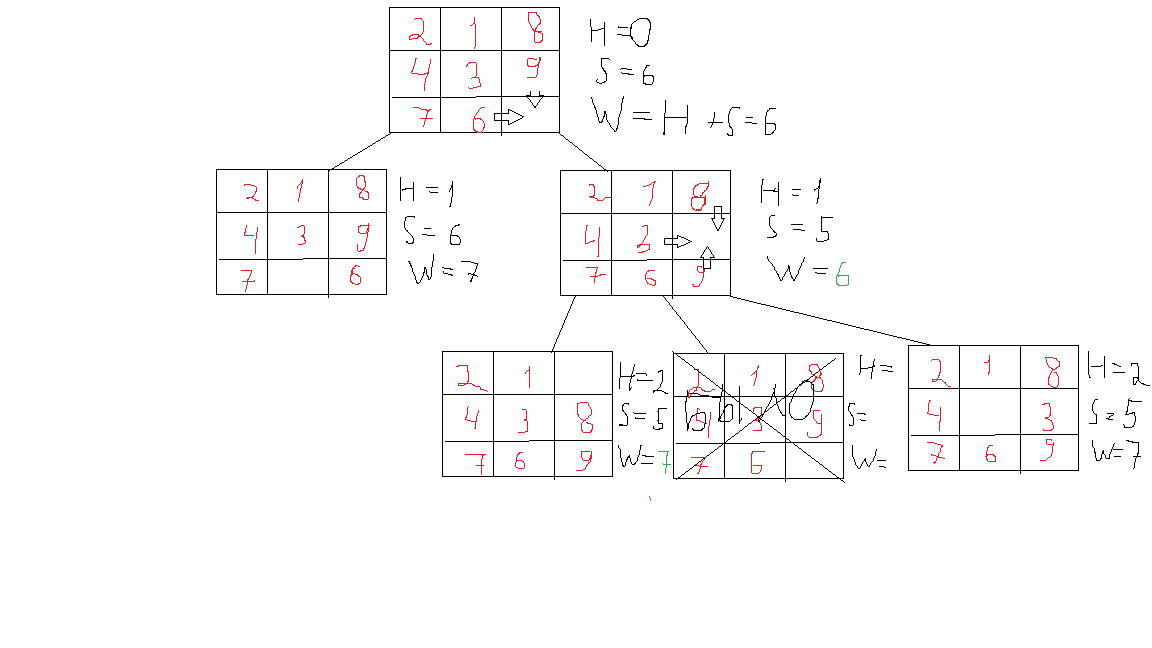 2 1 8
4 3 9
7 6
H=0
S=6
W=H+S=6
2 1 8
4 3 9
7 6
H=1
S=6
W=7
2 1 8
4 3
7 6 9
H=1
S=5
W=6
2 1
4 3 8
7 6 9
H=2
S=5
W=7
2 1 8
4 3 9
7 6
Было
H=
S=
W=
2 1 8
4 3
7 6 9
H=2
S=5
W=7